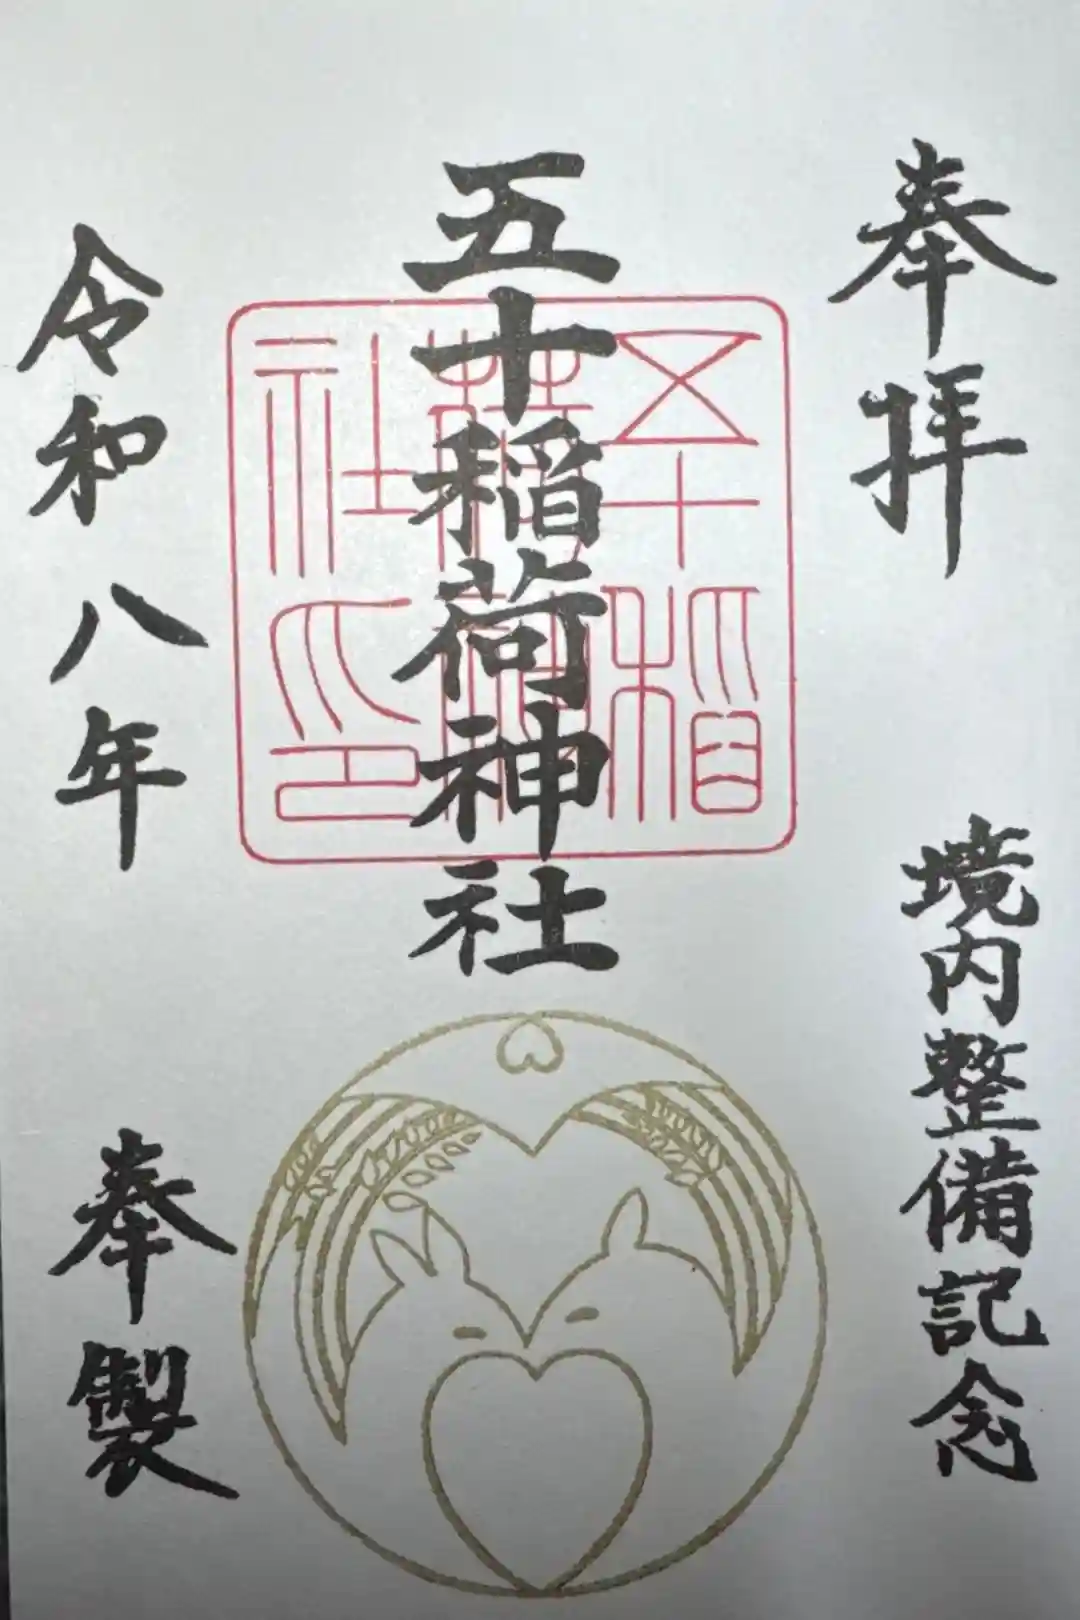 奉拝
境内整備記念
五十稲荷神社
五十稲
荷神
社印
令和八年
奉製